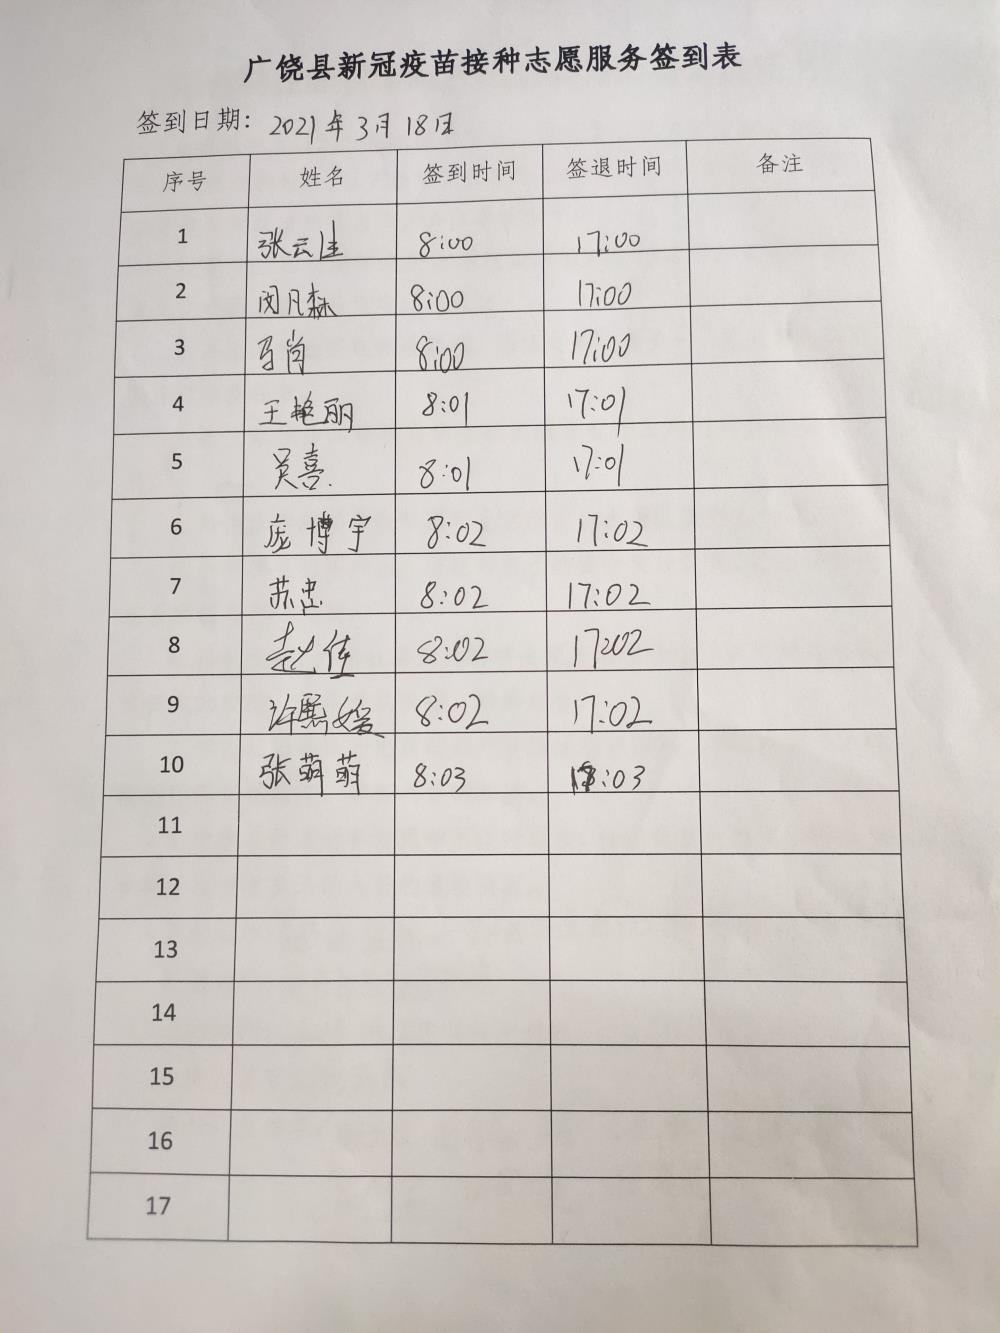 广饶县新冠疫苗接种志愿服务签到表
签到日期: 2021年3月18日
序号 姓名 签到时间 签退时间 备注
1 张云佳 8:00 17:00
2 闵凡森 8:00 17:00
3 马肖 8:00 17:00
4 王艳丽 8:01 17:01
5 吴喜 8:01 17:01
6 庞博宇 8:02 17:02
7 苏忠 8:02 17:02
8 赵佳 8:02 17:02
9 许熙媛 8:02 17:02
10 张萌萌 8:03 :03
11
12
13
14
15
16
17